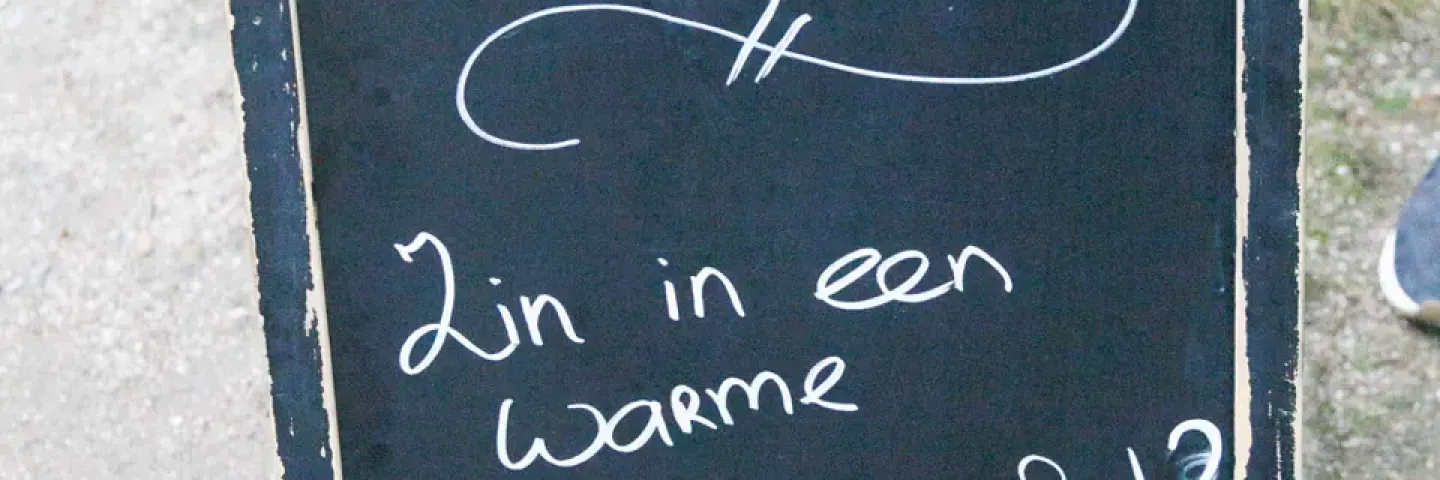 Zin in een
warme